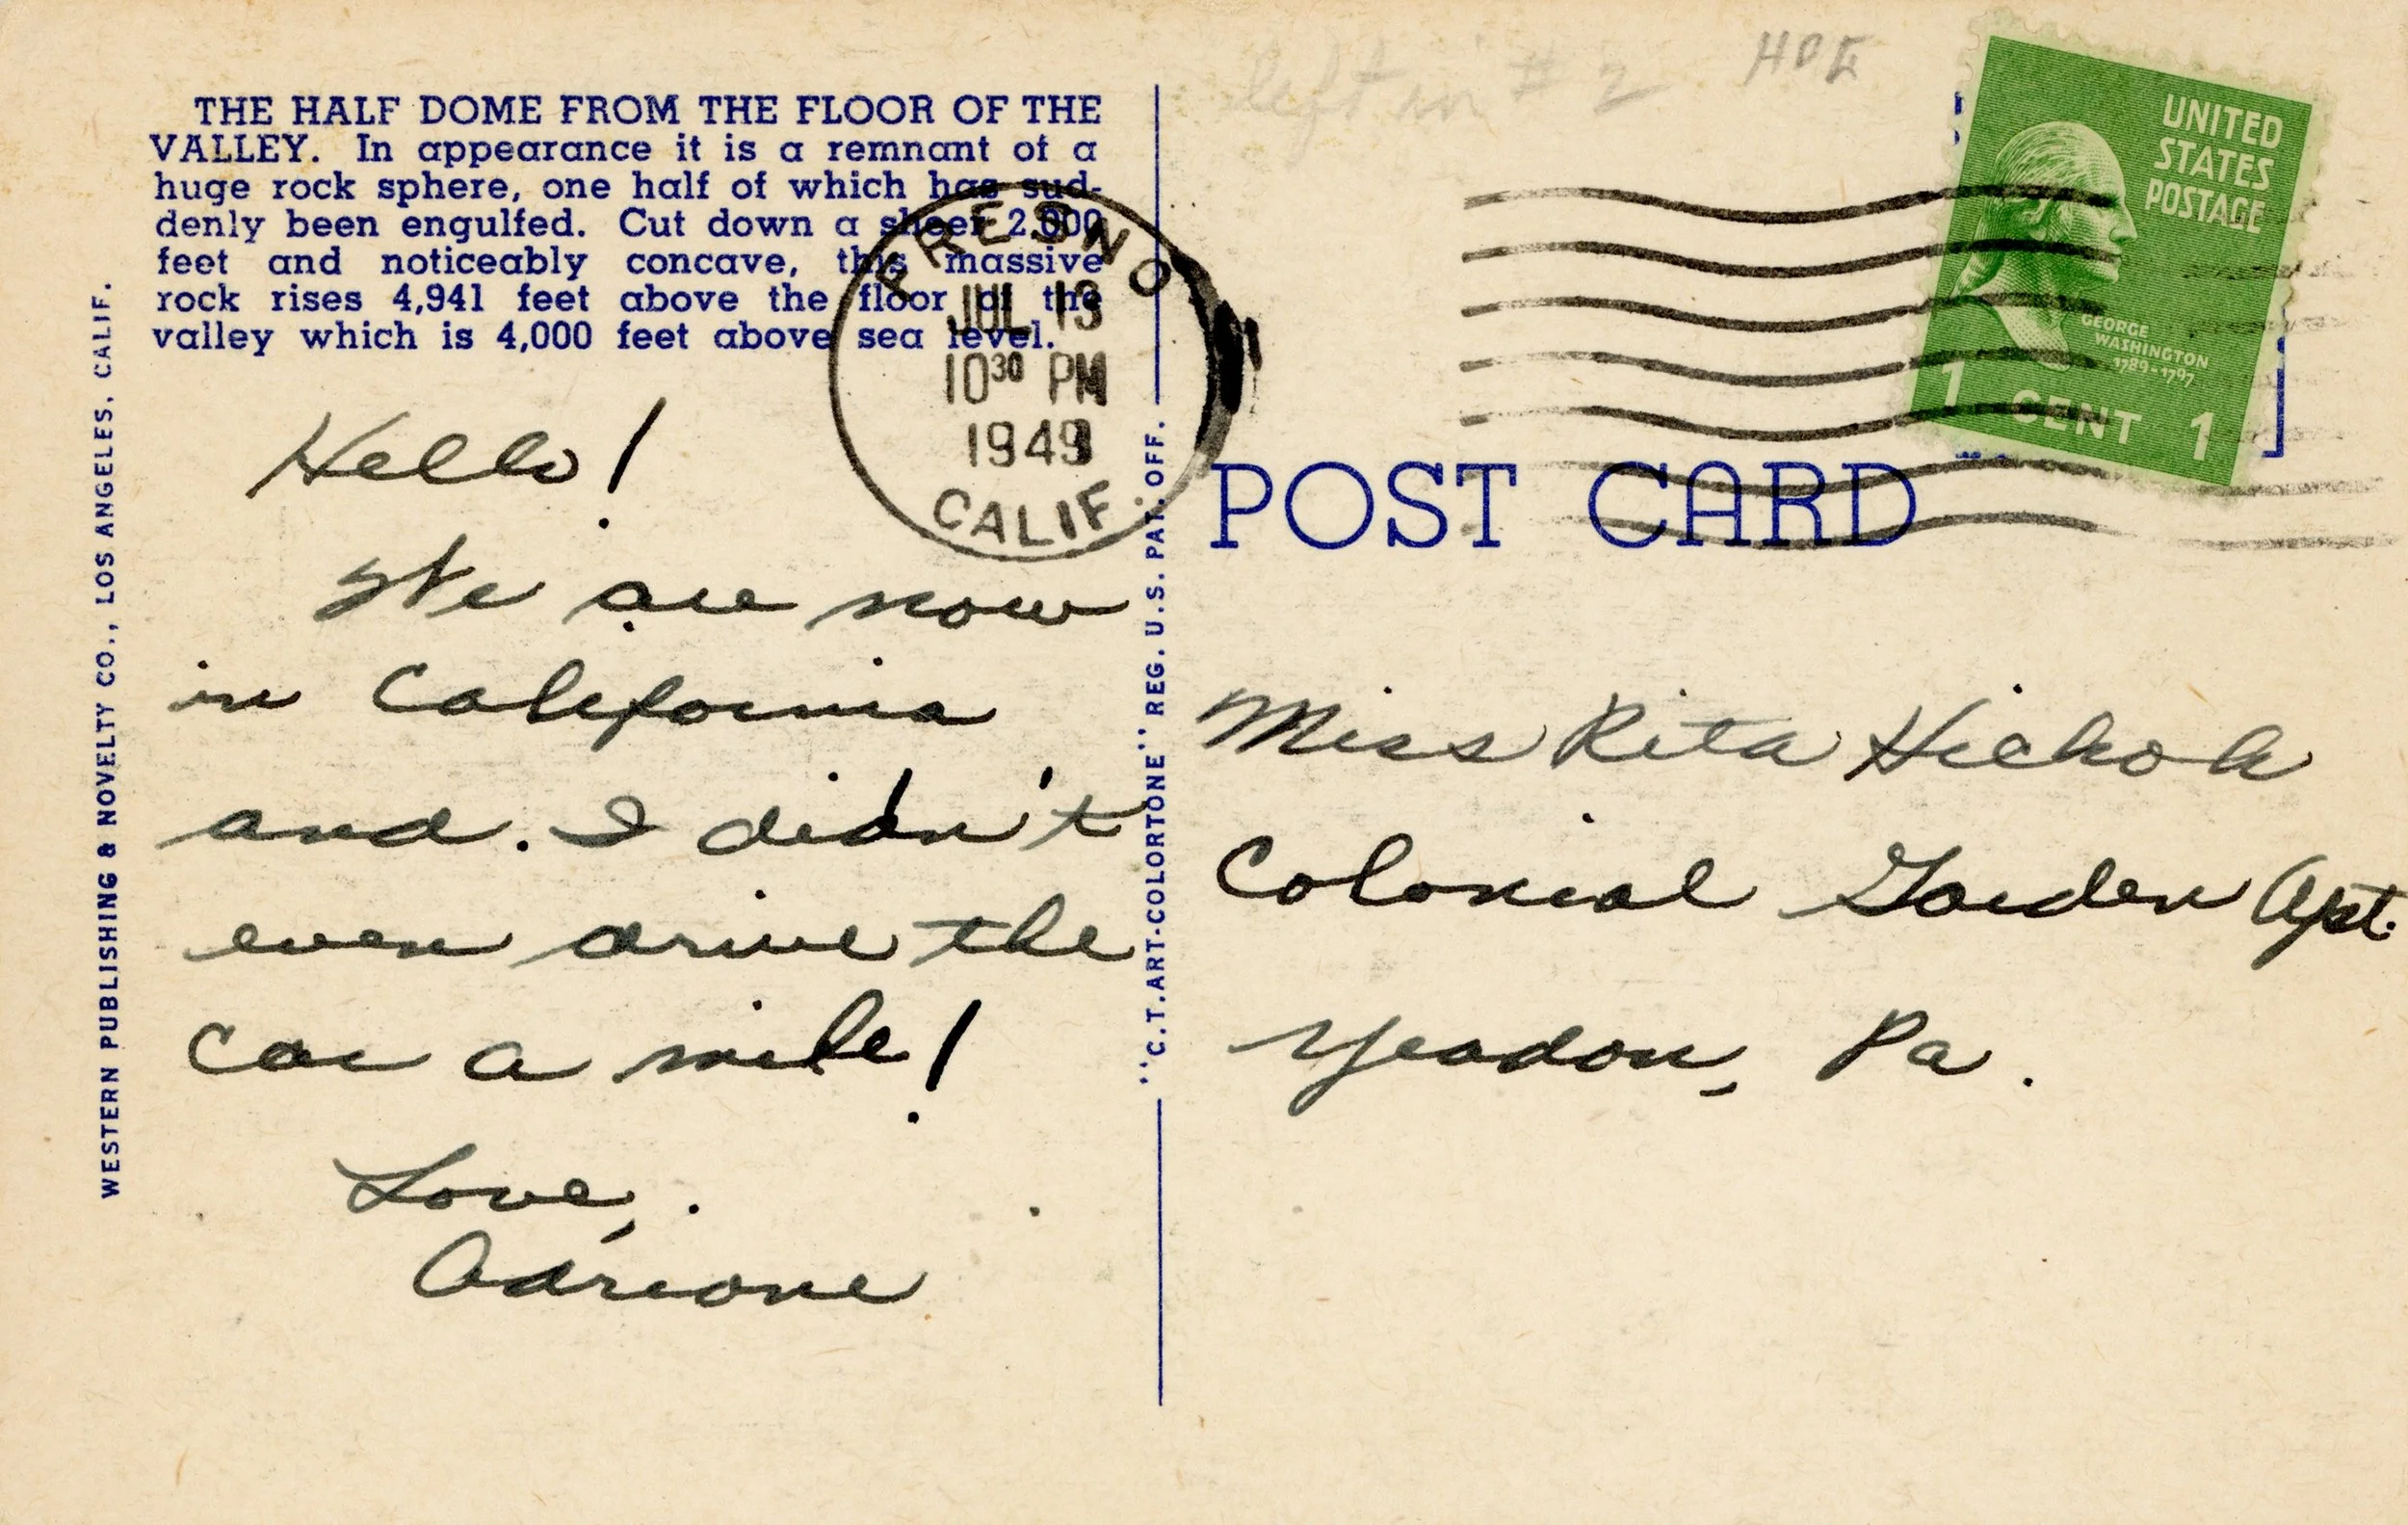 THE HALF DOME FROM THE FLOOR OF THE
VALLEY. In appearance it is a remnant of a
huge rock sphere, one half of which has sud-
denly been engulfed. Cut down a sheer 2,000
feet and noticeably concave, this massive
rock rises 4,941 feet above the floor of the
valley which is 4,000 feet above sea level.
WESTERN PUBLISHING & NOVELTY CO., LOS ANGELES, CALIF.
FRESNO
JUL 13
10³⁰ PM
1949
CALIF.
Hello!
We are now
in California
and. I didn't
even drive the
car a mile!
Love,
Adriane
"C.T.ART-COLORTONE" REG. U.S. PAT. OFF.
left in # 2
UNITED
STATES
POSTAGE
GEORGE
WASHINGTON
1789-1797
1 CENT 1
POST CARD
Miss Rita Hickok
Colonial Garden Apt.
Yeadon, Pa.